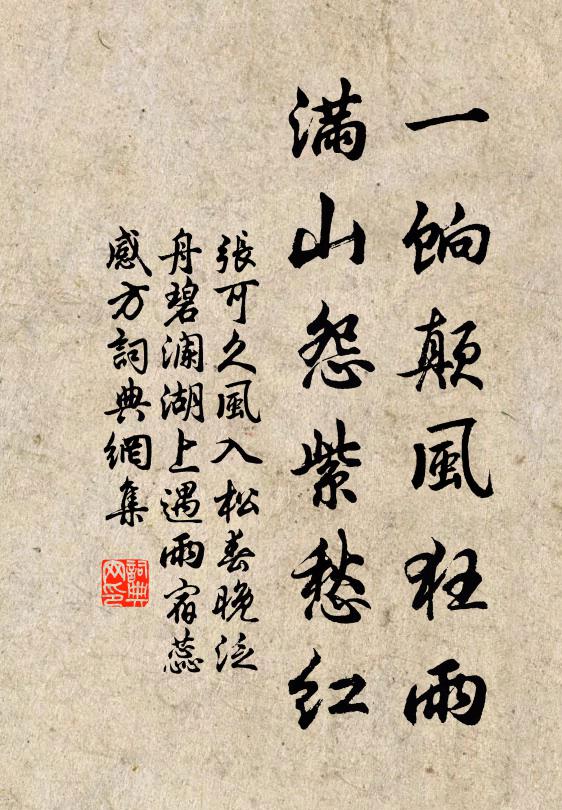 一餉顛風狂雨
滿山怨紫愁紅
張可久風入松春晚泛
舟碧瀾湖上遇雨宿蕊
感方詞典網集
詞典网印